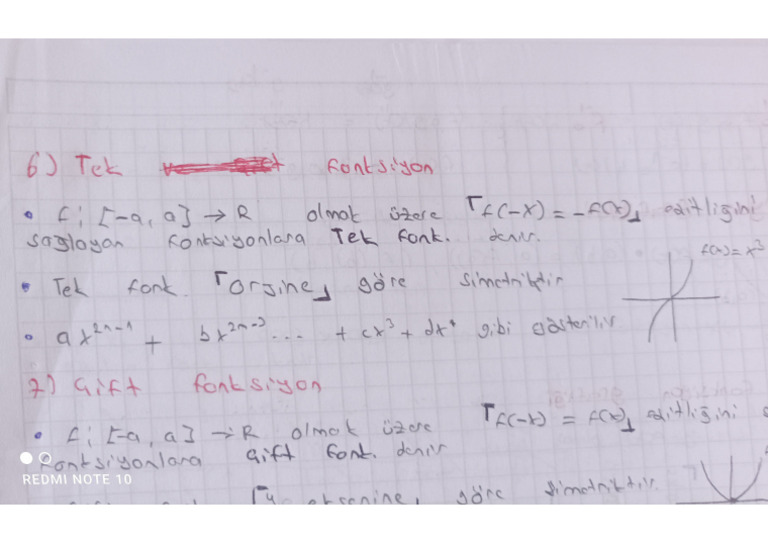 6) Tek fonksiyon
• f: [-a, a] → R olmak üzere ⌈f(-x) = -f(x)⌋ eşitliğini
sağlayan fonksiyonlara Tek fonk. denir.
• Tek fonk. ⌈Orjine⌋ göre simetriktir
f(x) = x³
• ax²ⁿ⁻¹ + bx²ⁿ⁻³ ... + cx³ + dx¹ gibi gösterilir
7) Çift fonksiyon
• f: [-a, a] → R olmak üzere ⌈f(-x) = f(x)⌋ eşitliğini
fonksiyonlara Çift fonk. denir
REDMI NOTE 10
⌈y eksenine⌋ göre simetriktir.